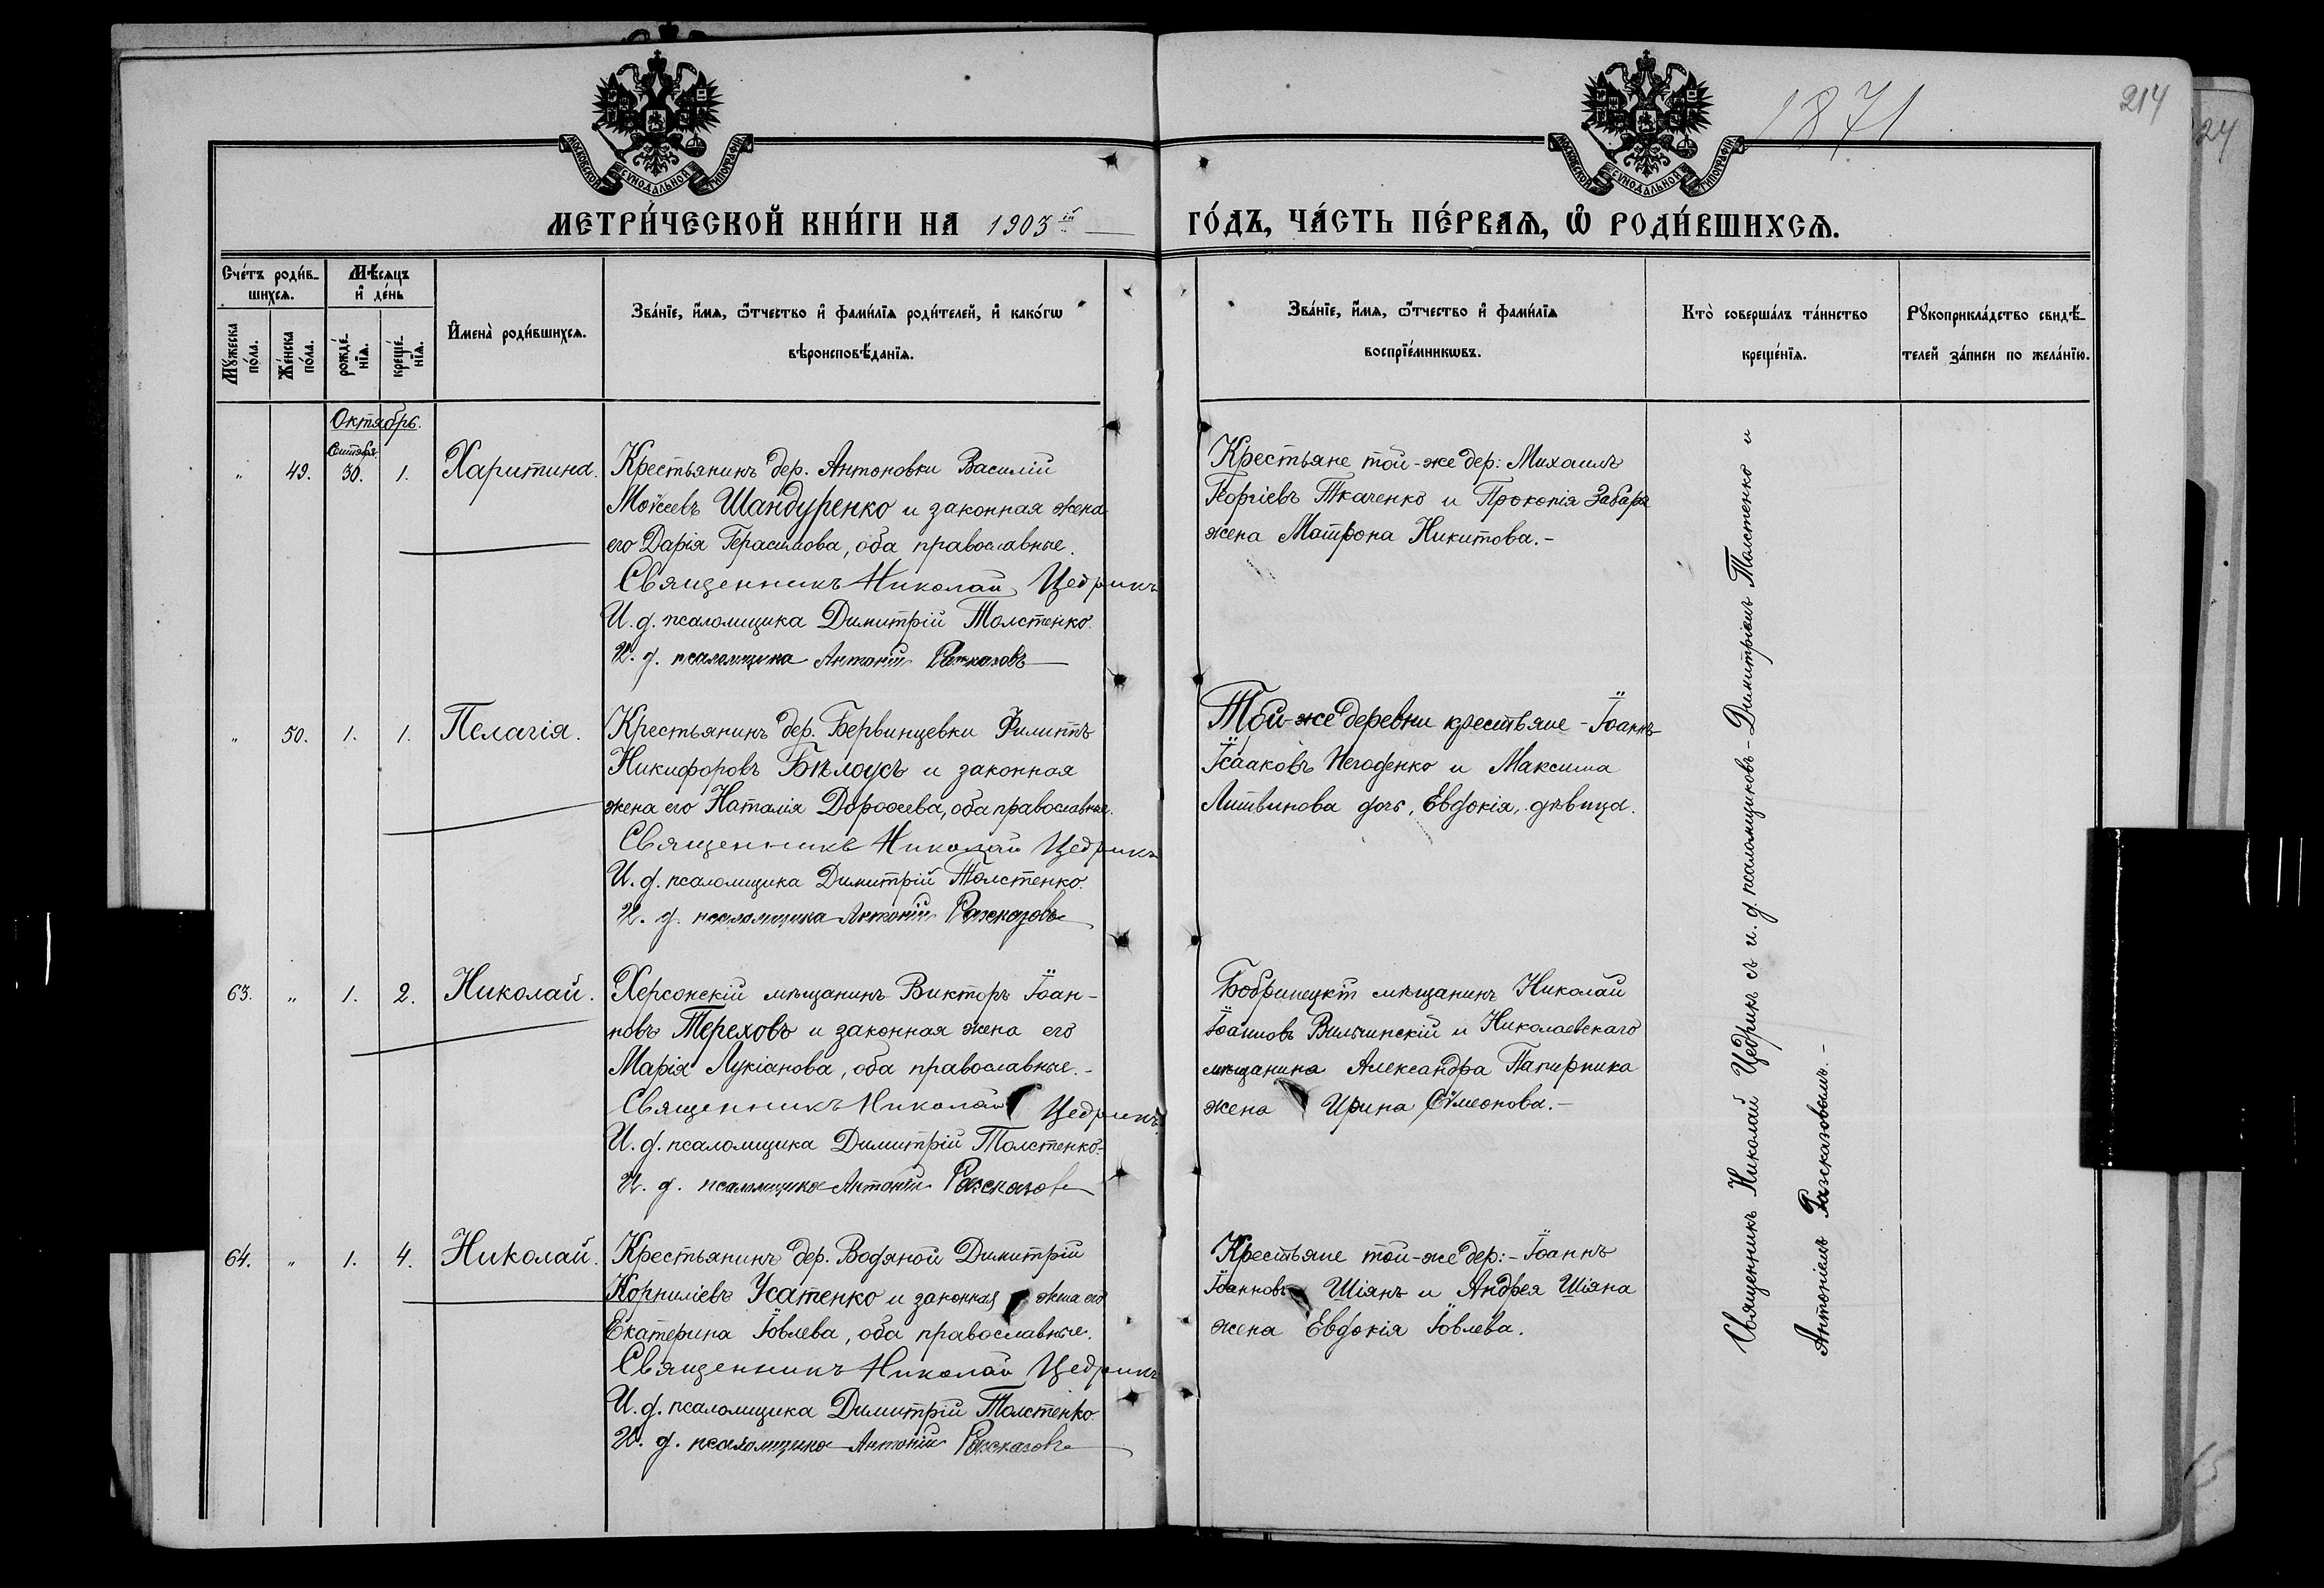 1871
214
24
МОСКОВСКОЙ СѴНОДАЛЬНОЙ ТИПОГРАФІИ
МОСКОВСКОЙ СѴНОДАЛЬНОЙ ТИПОГРАФІИ
МЕТРИ́ЧЕСКОЙ КНИ́ГИ НА 1903 ій ГО́ДЪ, ЧА́СТЬ ПЕ́РВАѦ, Ѡ҆ РОДИ́ВШИХСѦ.
Сче́тъ роди́в-
шихсѧ.
Мѣ́сѧцъ
и҆ де́нь
Мꙋ́жеска по́ла.
Же́нска по́ла.
рожде́-
нїѧ.
креще́-
нїѧ.
И҆мена̀ роди́вшихсѧ.
Зва́нїе, и҆́мѧ, ѻ҆́тчество и҆ фами́лїѧ роди́телей, и҆ како́гѡ
вѣроисповѣ́данїѧ.
Зва́нїе, и҆́мѧ, ѻ҆́тчество и҆ фами́лїѧ
воспрїе́мникѡвъ.
Кто̀ соверша́лъ та́инство
креще́нїѧ.
Рꙋкоприкла́дство свидѣ́-
телей за́писи по жела́нїю.
Октябрь.
Сентябр.
" 49. 30. 1. Харитина.
Крестьянинъ дер. Антоновки Василій
Моѵсеевъ Шандуренко и законная жена
его Дарія Герасимова, оба православные.
Священникъ Николай Цедрикъ
И. д. псаломщика Димитрій Толстенко.
И. д. псаломщика Антоній Разсказовъ
Крестьяне той-же дер: Михаилъ
Георгіевъ Ткаченко и Прокопія Забара
жена Матрона Никитова.-
" 50. 1. 1. Пелагія.
Крестьянинъ дер. Бервинцевки Филиппъ
Никифоровъ Бѣлоусъ и законная
жена его Наталія Дорофеева, оба православные.
Священникъ Николай Цедрикъ
И. д. псаломщика Димитрій Толстенко.
И. д. псаломщика Антоній Разсказовъ
Той-же деревни крестьяне - Іоаннъ
Ісааковъ Негоденко и Максима
Литвинова дочь, Евдокія, дѣвица.
63. " 1. 2. Николай.
Херсонскій мѣщанинъ Викторъ Іоан-
новъ Тереховъ и законная жена его
Марія Лукіанова, оба православные.-
Священникъ Николай Цедрикъ
И. д. псаломщика Димитрій Толстенко.-
И. д. псаломщика Антоній Разсказовъ
мѣщанинъ Николай
Іоанновъ Вильчинскій и Николаевскаго
мѣщанина Александра Папирника
жена Ирина Сѵмеонова.-
64. " 1. 4. Николай.
Крестьянинъ дер. Водяной Димитрій
Корниліевъ Усатенко и законная жена его
Екатерина Іовлева, оба православные.
Священникъ Николай Цедрикъ
И. д. псаломщика Димитрій Толстенко.
И. д. псаломщика Антоній Разсказовъ
Крестьяне той-же дер:- Іоаннъ
Іоанновъ Шіянъ и Андрея Шіяна
жена Евдокія Іовлева.
Священникъ Николай Цедрикъ съ и. д. псаломщиковъ - Димитріемъ Толстенко и
Антоніемъ Разсказовымъ.-